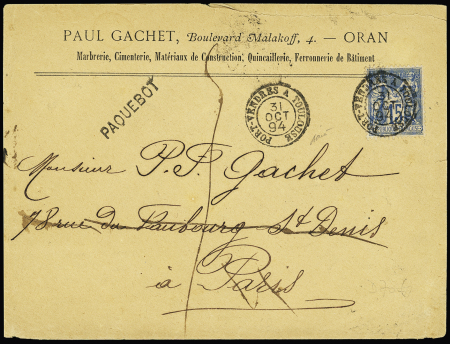 PAUL GACHET, Boulevard Malakoff, 4. — ORAN
Marbrerie, Cimenterie, Matériaux de Construction, Quincaillerie, Ferronnerie de Bâtiment
PAQUEBOT
PORT-VENDRES A TOULOUSE
31
OCT
94
PORT-VENDRES A TOULOUSE
31
OCT
94
15
Monsieur P. F. Gachet
78 rue du Faubourg St Denis
à Paris